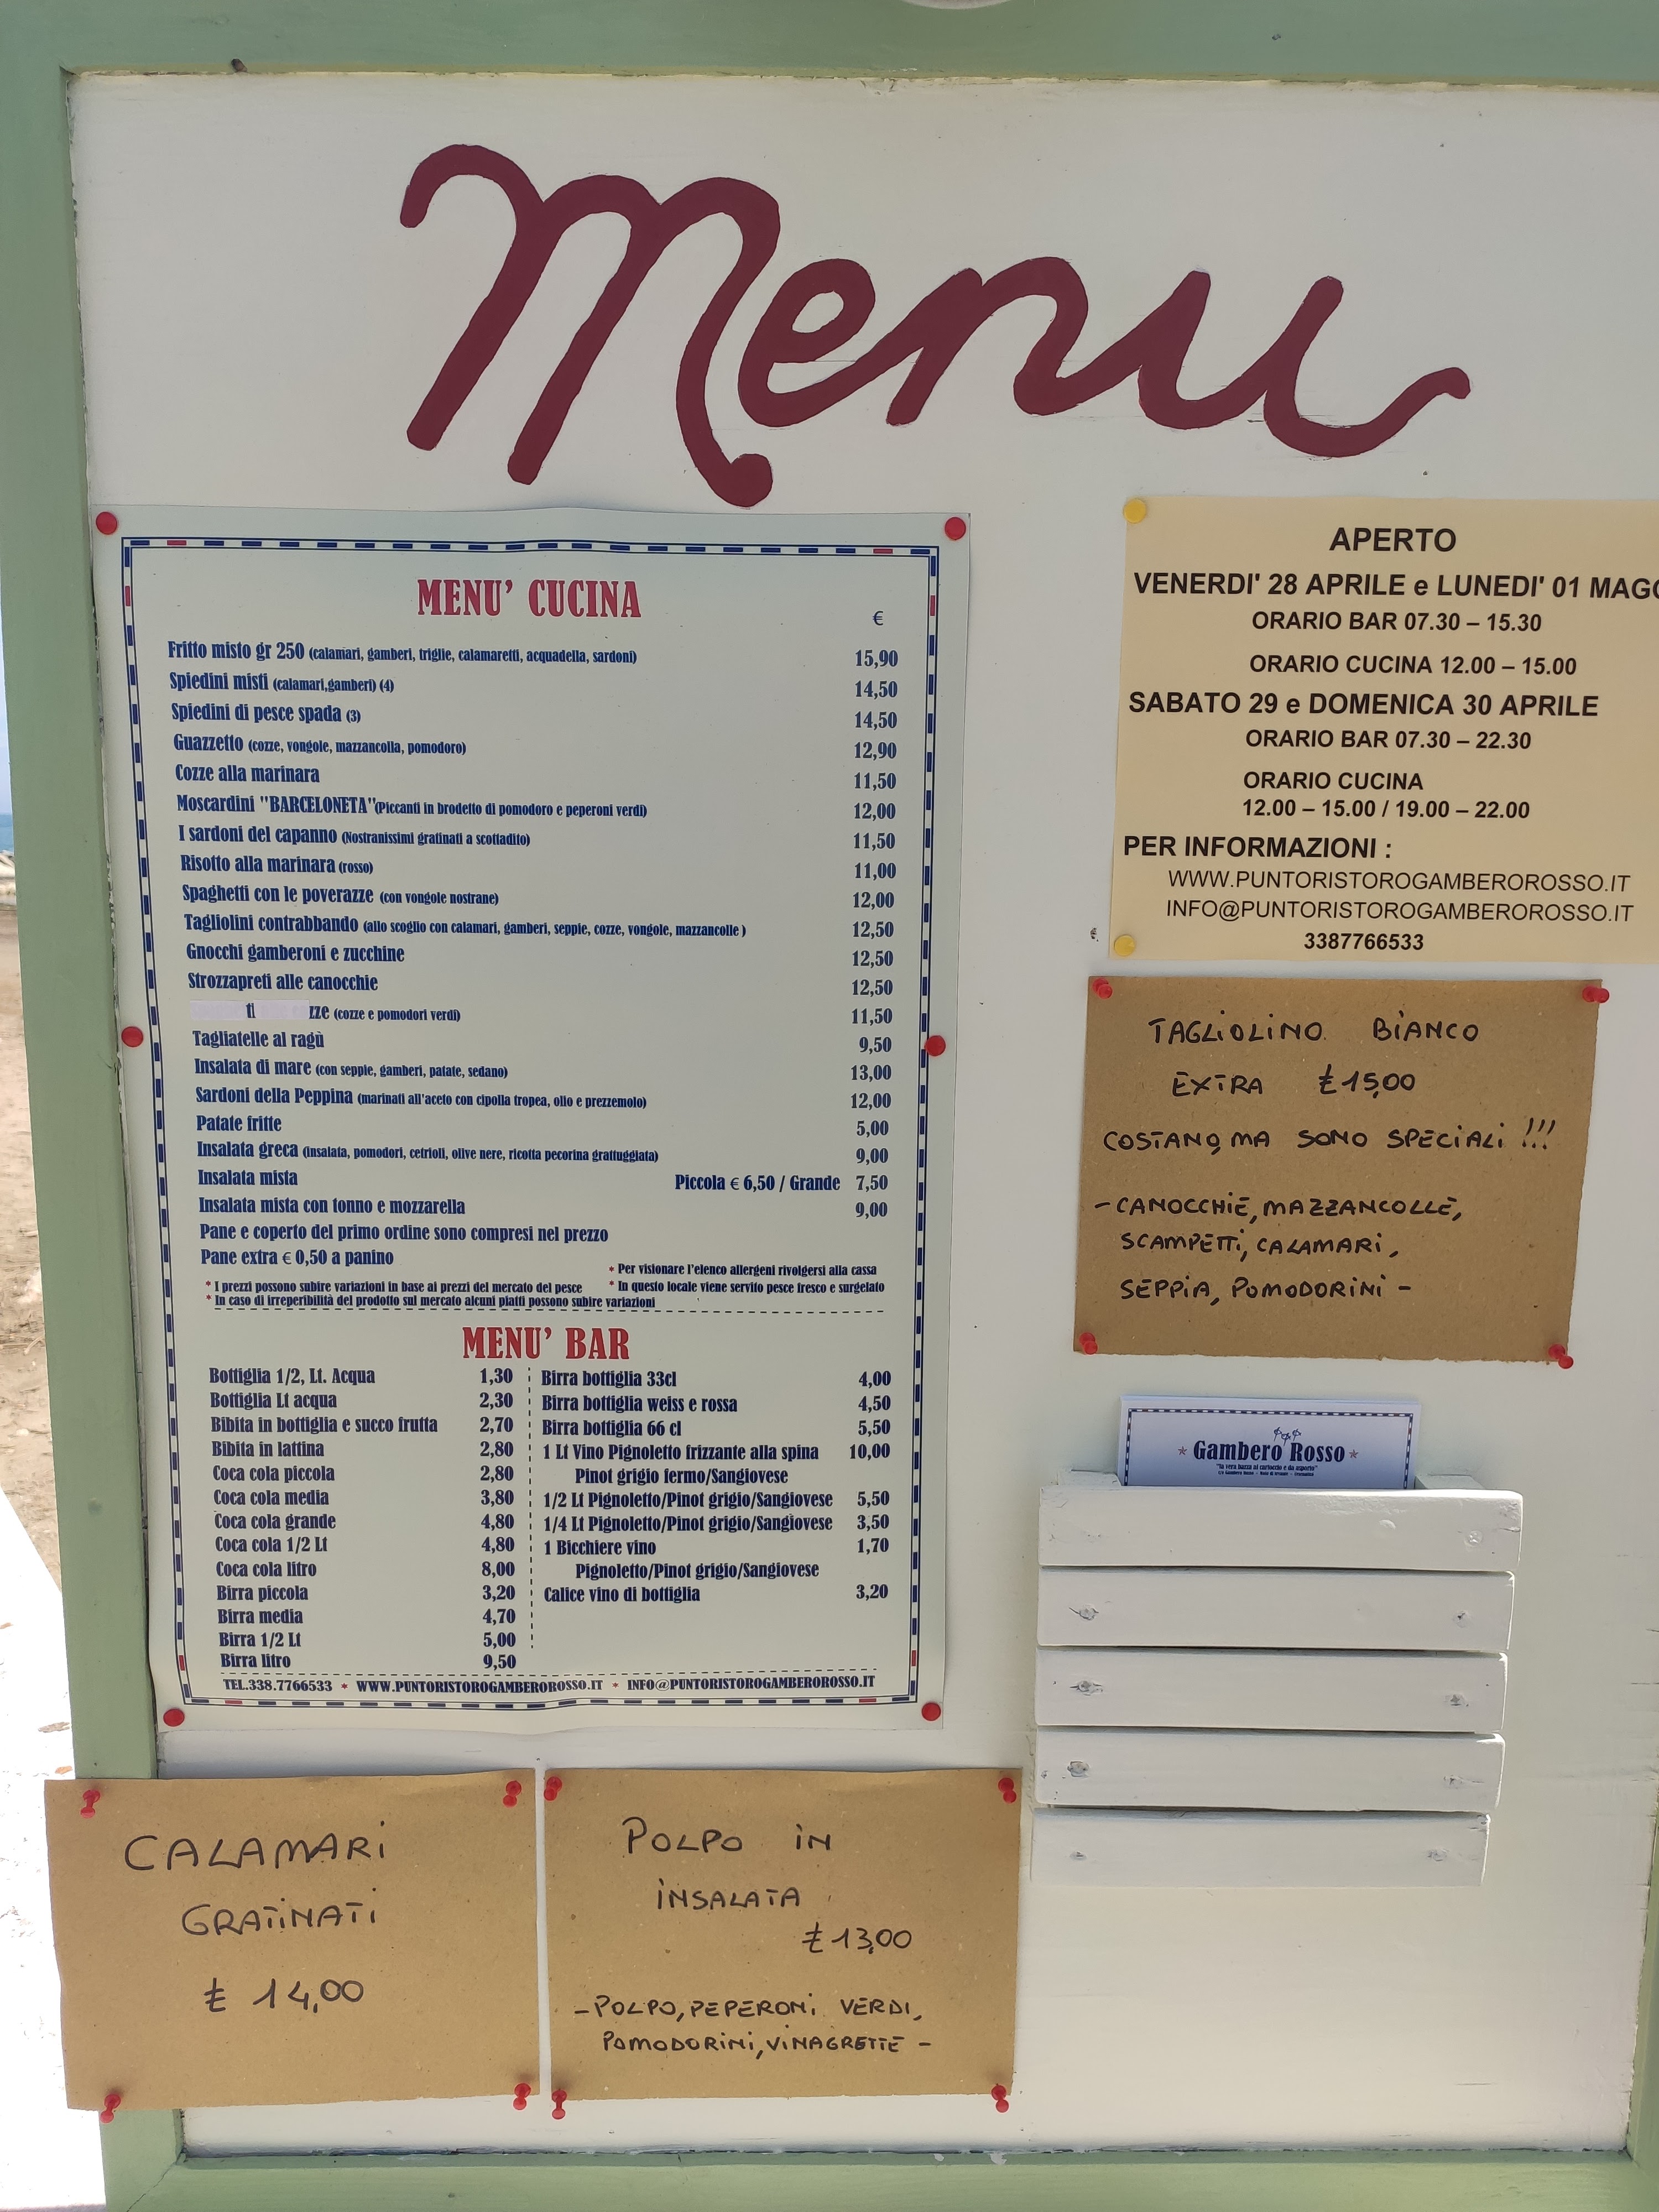 Menu
MENU' CUCINA
€
Fritto misto gr 250 (calamari, gamberi, triglie, calamaretti, acquadella, sardoni) 15,90
Spiedini misti (calamari,gamberi) (4) 14,50
Spiedini di pesce spada (3) 14,50
Guazzetto (cozze, vongole, mazzancolla, pomodoro) 12,90
Cozze alla marinara 11,50
Moscardini "BARCELONETA"(Piccanti in brodetto di pomodoro e peperoni verdi) 12,00
I sardoni del capanno (Nostranissimi gratinati a scottadito) 11,50
Risotto alla marinara (rosso) 11,00
Spaghetti con le poverazze (con vongole nostrane) 12,00
Tagliolini contrabbando (allo scoglio con calamari, gamberi, seppie, cozze, vongole, mazzancolle ) 12,50
Gnocchi gamberoni e zucchine 12,50
Strozzapreti alle canocchie 12,50
(cozze e pomodori verdi) 11,50
Tagliatelle al ragù 9,50
Insalata di mare (con seppie, gamberi, patate, sedano) 13,00
Sardoni della Peppina (marinati all'aceto con cipolla tropea, olio e prezzemolo) 12,00
Patate fritte 5,00
Insalata greca (insalata, pomodori, cetrioli, olive nere, ricotta pecorina grattuggiata) 9,00
Insalata mista Piccola € 6,50 / Grande 7,50
Insalata mista con tonno e mozzarella 9,00
Pane e coperto del primo ordine sono compresi nel prezzo
Pane extra € 0,50 a panino
* Per visionare l'elenco allergeni rivolgersi alla cassa
* I prezzi possono subire variazioni in base ai prezzi del mercato del pesce * In questo locale viene servito pesce fresco e surgelato
* In caso di irreperibilità del prodotto sul mercato alcuni piatti possono subire variazioni
MENU' BAR
Bottiglia 1/2, Lt. Acqua 1,30
Bottiglia Lt acqua 2,30
Bibita in bottiglia e succo frutta 2,70
Bibita in lattina 2,80
Coca cola piccola 2,80
Coca cola media 3,80
Coca cola grande 4,80
Coca cola 1/2 Lt 4,80
Coca cola litro 8,00
Birra piccola 3,20
Birra media 4,70
Birra 1/2 Lt 5,00
Birra litro 9,50
Birra bottiglia 33cl 4,00
Birra bottiglia weiss e rossa 4,50
Birra bottiglia 66 cl 5,50
1 Lt Vino Pignoletto frizzante alla spina 10,00
Pinot grigio fermo/Sangiovese
1/2 Lt Pignoletto/Pinot grigio/Sangiovese 5,50
1/4 Lt Pignoletto/Pinot grigio/Sangiovese 3,50
1 Bicchiere vino 1,70
Pignoletto/Pinot grigio/Sangiovese
Calice vino di bottiglia 3,20
TEL.338.7766533 * WWW.PUNTORISTOROGAMBEROROSSO.IT * INFO@PUNTORISTOROGAMBEROROSSO.IT
APERTO
VENERDI' 28 APRILE e LUNEDI' 01 MAGG
ORARIO BAR 07.30 – 15.30
ORARIO CUCINA 12.00 – 15.00
SABATO 29 e DOMENICA 30 APRILE
ORARIO BAR 07.30 – 22.30
ORARIO CUCINA
12.00 – 15.00 / 19.00 – 22.00
PER INFORMAZIONI :
WWW.PUNTORISTOROGAMBEROROSSO.IT
INFO@PUNTORISTOROGAMBEROROSSO.IT
3387766533
TAGLIOLINO BIANCO
EXTRA £ 15,00
COSTANO, MA SONO SPECIALI !!!
- CANOCCHIE, MAZZANCOLLE,
SCAMPETTI, CALAMARI,
SEPPIA, POMODORINI -
* Gambero Rosso *
CALAMARI
GRATINATI
£ 14,00
POLPO IN
INSALATA
£ 13,00
- POLPO, PEPERONI VERDI,
POMODORINI, VINAGRETTE -